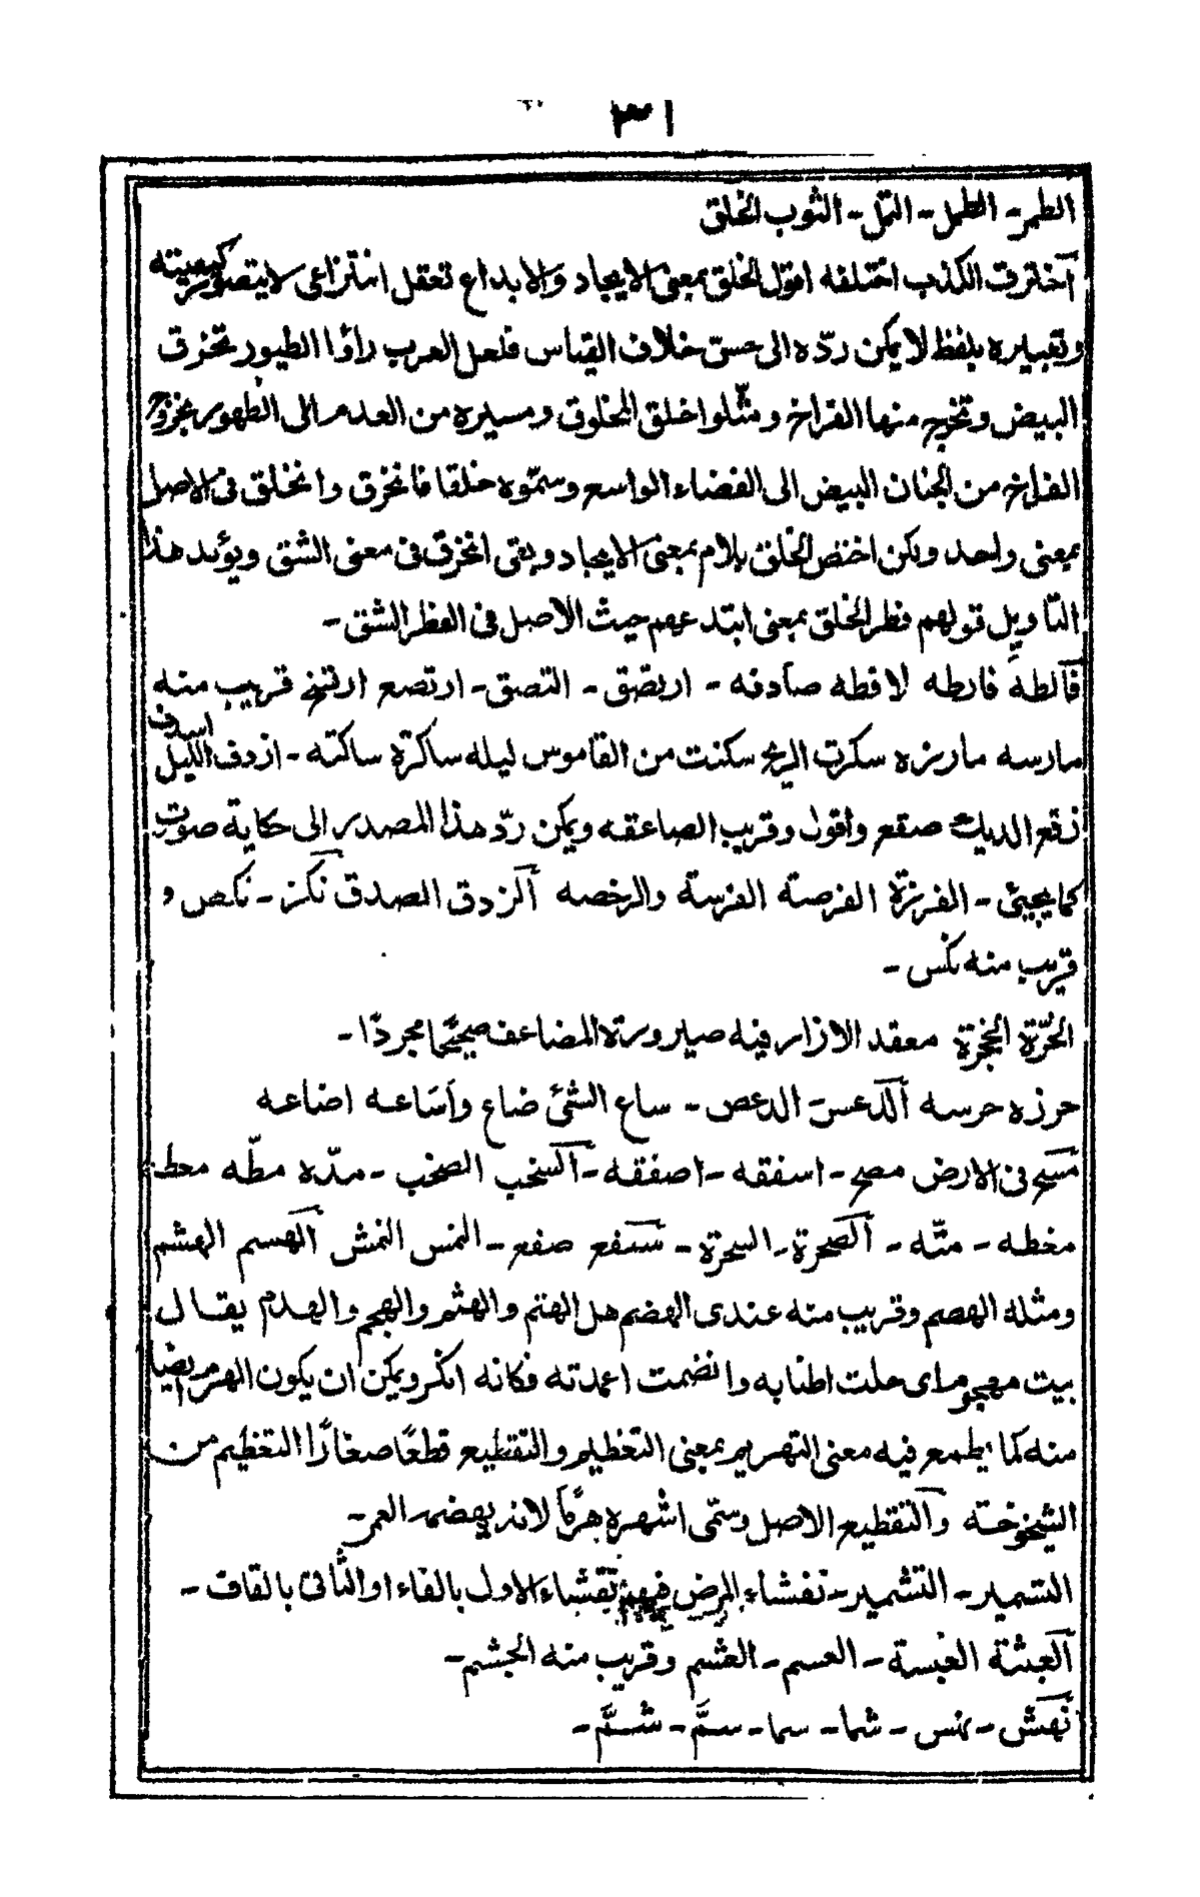 ٣١
الطمر - الطمل - التمل - الثوب الخلق
آخترق الكذب اختلقه اقول الخلق بمعنى الايجاد والابداع تعقل انتزاعى لايتصور كيفيته
وتعبيره بلفظ لا يمكن ردّه الى حسىّ خلاف القياس فلعل العرب راؤا الطيور تخرق
البيض وتخرج منها الفراخ ومثّلوا خلق المخلوق ومسيره من العدم الى الظهور بخروج
الفراخ من الجنان البيض الى الفضاء الواسع وسمّوه خلقا فانخرق وانخلق فى الاصل
بمعنى واحد ولكن اختص الخلق بلام بمعنى الايجاد وبقى انخرق فى معنى الشق ويؤيد هذا
التاويل قولهم فطر الخلق بمعنى ابتدعهم حيث الاصل فى الفطر الشق -
قآلطه قارطه لاقطه صادفه - ارتصق - التصق - ارتصع ارتسخ قريب منه
مارسه مارزه سكرت الريح سكنت من القاموس ليله ساكرة ساكته - ازدف الليل اسدف
زقع الديك صقع واقول وقريب الصاعقه ويمكن ردّ هذا المصدر الى حكاية صوت
كما يجيئ - الفرزة الفرصته الفرسة والرخصه آلزدق الصدق نكز - نكص و
قريب منه نكس -
الحُزّة الحجزة معقد الازار فيه صيرورة المضاعف صحيحًا مجردًا -
حرزه حرسه آلدعس الدعص - ساع الشئ ضاع وأسَاعه اضاعه
مَسَح فى الارض مصح - اسفقه - اصفقه - آلسخب الصخب - مدّه مطّه معط
مغطه - متّه - آلصحرة - السحرة - سَفع صفع - النمس النمش آلهسم الهشم
ومثله الهصم وقريب منه عندى الهضم هل الهتم والهثم والهجم والهدم يقال
بيت مهجوم اى حلت اطنابه وانضمت اعمدته فكانه انكسر ويمكن ان يكون الهرم ايضا
منه كما يطمع فيه معنى التهريم بمعنى التغطيم والتقطيع قطعًا صغارًا التغظيم من
الشيخوخته والتقطيع الاصل وسمّى اشهره هرمًا لانه يهضم العمر -
التسمير - التشمير - تفشاء المرض فيهم تقشاء الاول بالفاء او الثانى بالقاف -
آلعبشة العبسة - العسم - العشم وقريب منه الجشم -
نهَش - نهس - شما - سما - سمَّ - شمَّ -